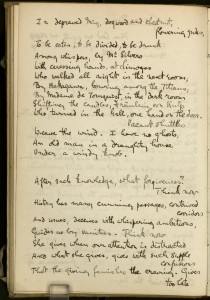 In depraved May, dogwood and chestnut,
flowering judas,
To be eaten, to be divided, to be drunk
Among whispers; by Mr Silvero
With caressing hands, at Limoges
Who walked all night in the next room;
By Hakagawa, bowing among the Titians;
By Madame de Tornquist, in the dark room
Shifting the candles, Fräulein von Kulp
Who turned in the hall, one hand on the door.
Vacant shuttles
Weave the wind. I have no ghosts,
An old man in a draughty house
Under a windy knob.
After such knowledge, what forgiveness?
Think now
History has many cunning passages, contrived
corridors
And issues, deceives with whispering ambitions,
Guides us by vanities. Think now
She gives when our attention is distracted
And what she gives, gives with such supple
confusions
That the giving famishes the craving. Gives
too late